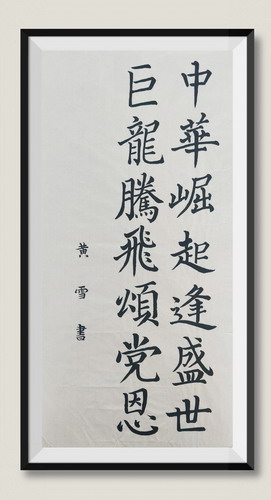 中華崛起逢盛世
巨龍騰飛頌党恩
黄雪書